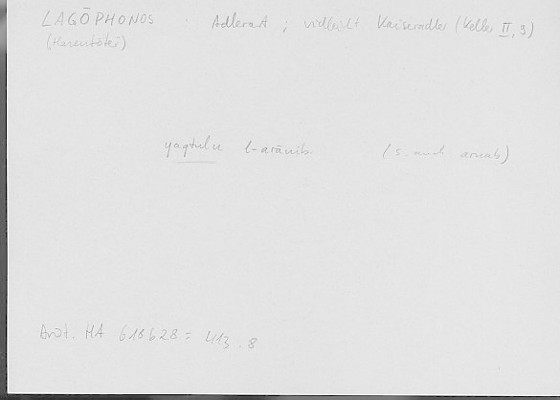 LAGŌPHONOS : Adlerart ; vielleicht Kaiseradler (Keller II, 3)
(Hasentöter)
yaqtulu l-arānib. (s. auch arnab)
Arist. HA 618b28 = 413.8